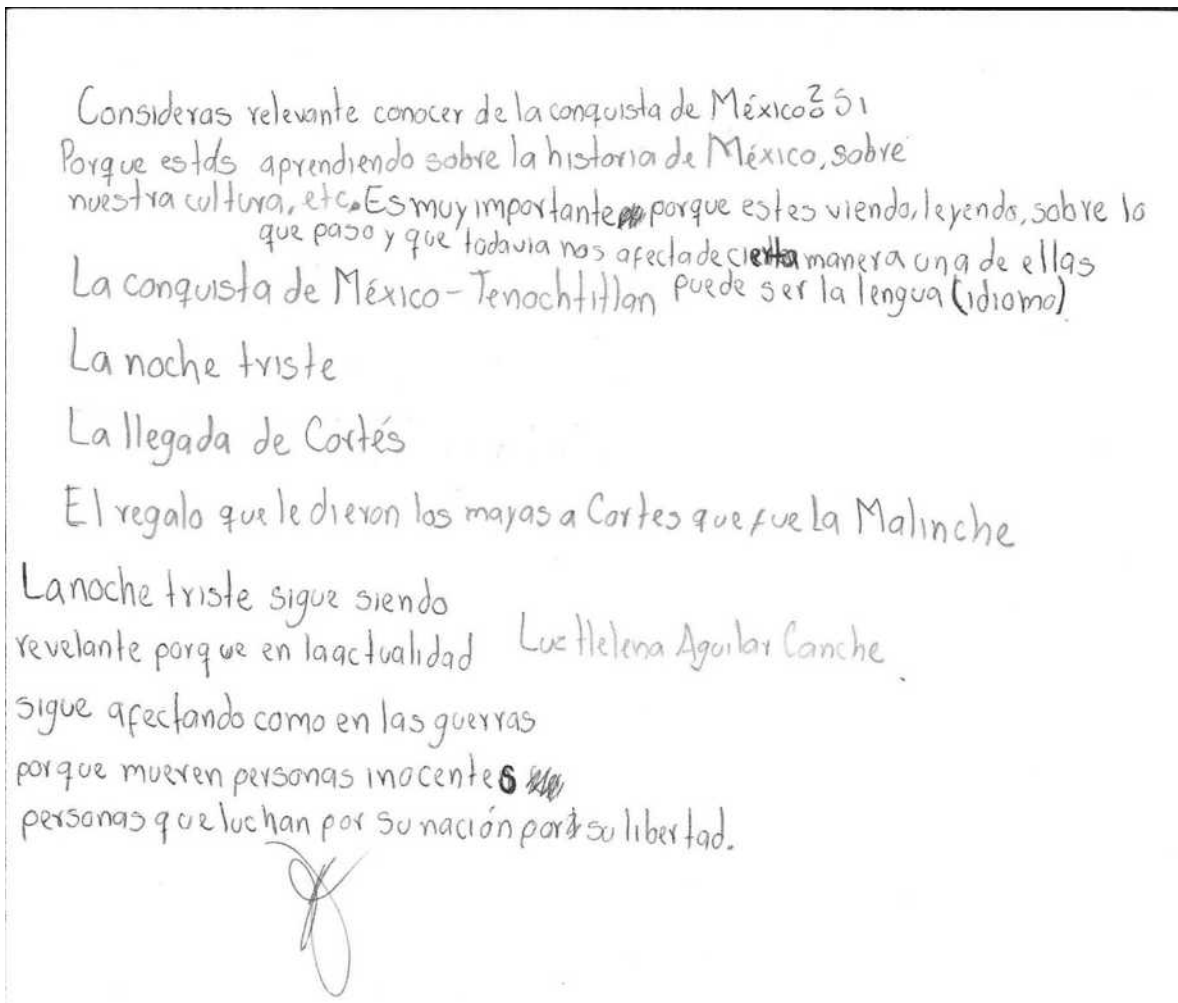 Consideras relevante conocer de la conquista de México? Si
Porque estás aprendiendo sobre la historia de México, sobre
nuestra cultura, etc. Es muy importante porque estes viendo, leyendo, sobre lo
que paso y que todavia nos afecta de cierta manera una de ellas
puede ser la lengua (idioma)
La conquista de México-Tenochtitlan
La noche triste
La llegada de Cortés
El regalo que le dieron los mayas a Cortes que fue La Malinche
La noche triste sigue siendo
revelante porque en la actualidad
sigue afectando como en las guerras
porque mueren personas inocentes
personas que luchan por su nación por su libertad.
Luc Helena Aguilar Canche